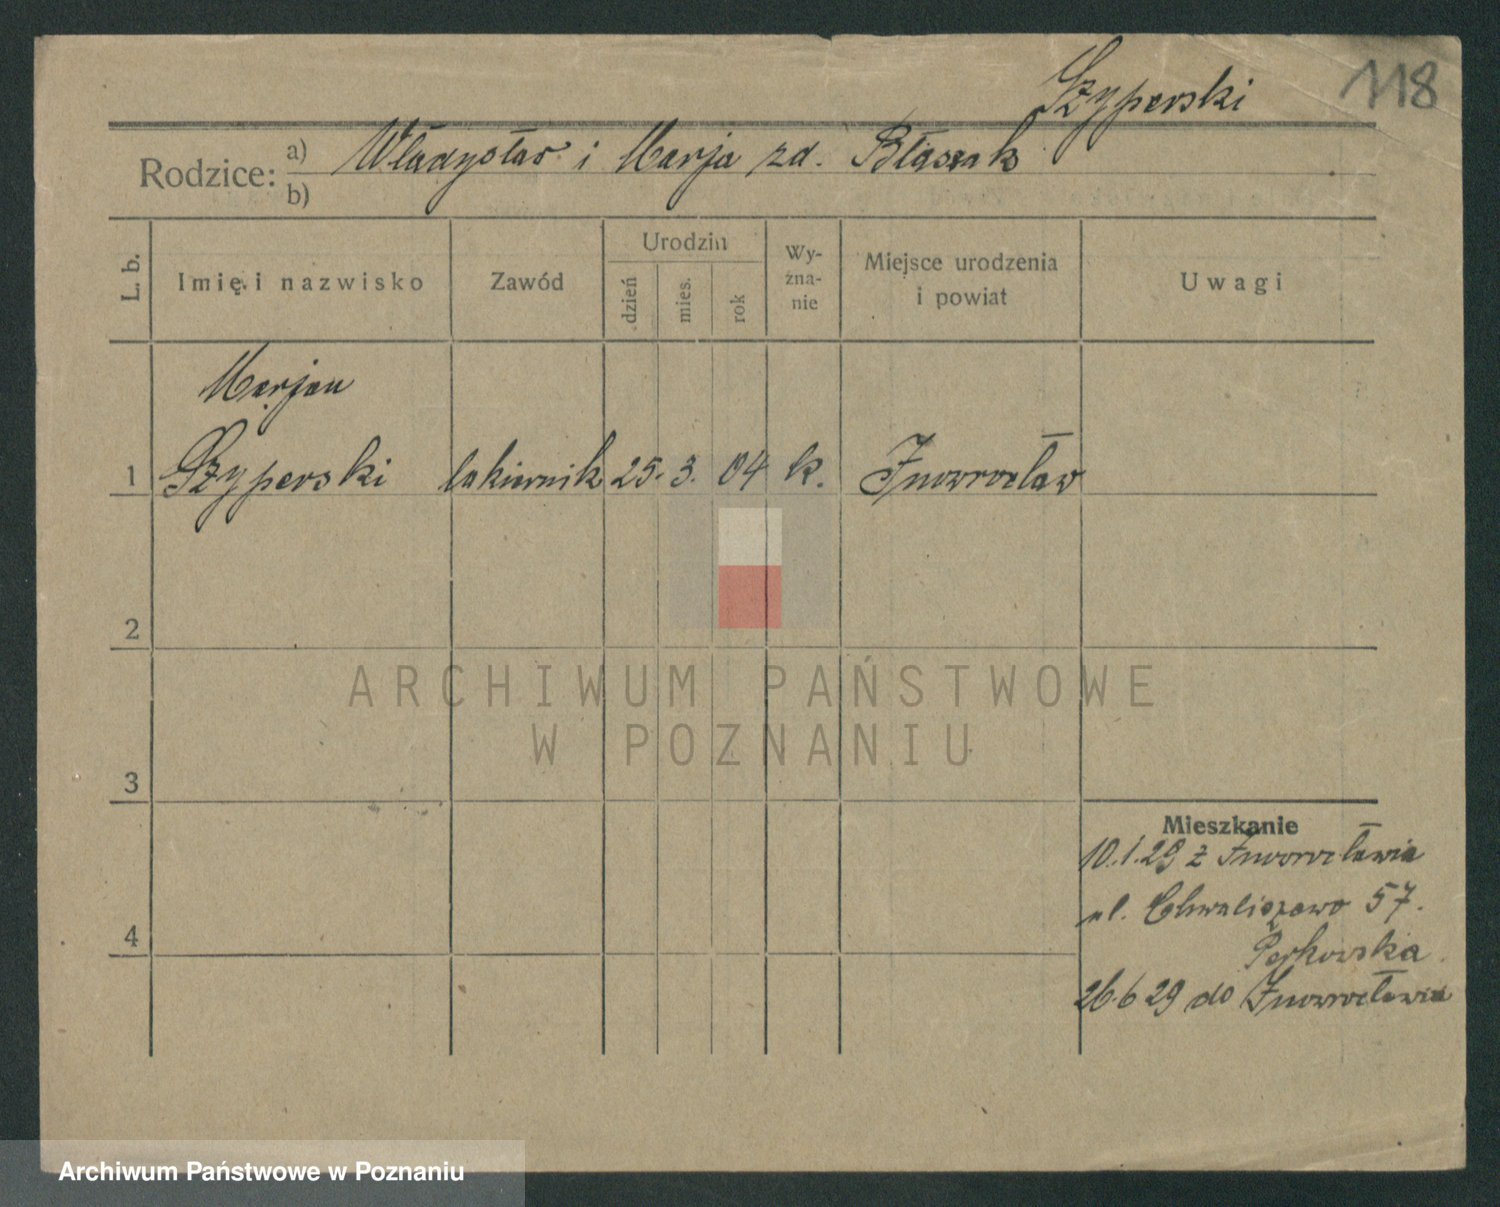 Szyperski 118
Rodzice: a) Władysław i Marja zd. Błaszak
b)
L. b. Imię i nazwisko Zawód Urodzin Wy-zna-nie Miejsce urodzenia i powiat Uwagi
dzień mies. rok
Marjan
1 Szyperski lakiernik 25. 3. 04 k. Inowrocław
2
3
4
Mieszkanie
10.1.29 z Inowrocławia
ul. Chwaliszewo 57.
26.6 29 do Inowrocławia
ARCHIWUM PAŃSTWOWE
W POZNANIU
Archiwum Państwowe w Poznaniu